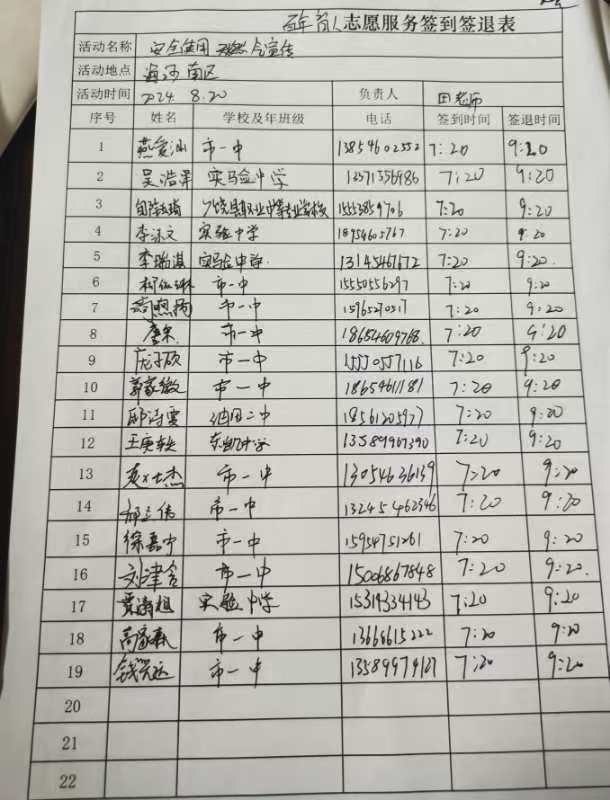 志愿服务签到签退表
活动名称 安全使用天然气宣传
活动地点 海河南区
活动时间 2024. 8.20 负责人 田老师
序号 姓名 学校及年班级 电话 签到时间 签退时间
1 市一中 13854602552 7:20 9:20
2 吴浩 实验中学 13371356986 7:20 9:20
3 15553859706 7:20 9:20
4 李泳文 实验中学 18754605767 7:20 9:20
5 李瑞淇 实验中学 13145467672 7:20 9:20
6 市一中 15550556297 7:20 9:20
7 市一中 15965270517 7:20 9:20
8 市一中 18654609768 7:20 9:20
9 庞子硕 市一中 15550557116 7:20 9:20
10 郭家徽 市一中 18654611181 7:20 9:20
11 邱诗雯 油田二中 18561205977 7:20 9:20
12 王庚轶 东凯中学 13589967390 7:20 9:20
13 市一中 13054636139 7:20 9:20
14 市一中 13245462346 7:20 9:20
15 徐嘉宁 市一中 15954751261 7:20 9:20
16 刘津含 市一中 15006867848 7:20 9:20
17 实验中学 15319334143 7:20 9:20
18 市一中 13666615222 7:20 9:20
19 市一中 13589979127 7:20 9:20
20
21
22